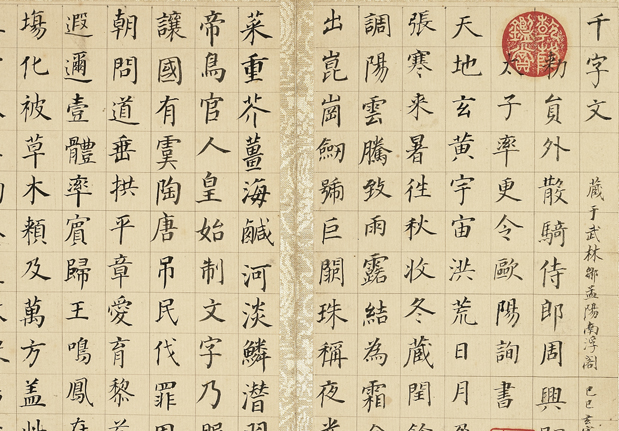 千字文
藏于武林鄒孟陽南浮閣 己巳
勑員外散騎侍郎周興
太子率更令歐陽詢書
天地玄黃宇宙洪荒日月
張寒來暑往秋收冬藏閏餘
調陽雲騰致雨露結為霜金
出崑崗劒號巨闕珠稱夜光
菜重芥薑海鹹河淡鱗潛羽
帝鳥官人皇始制文字乃服
讓國有虞陶唐吊民伐罪周
朝問道垂拱平章愛育黎首
遐邇壹體率賓歸王鳴鳳在
塲化被草木賴及萬方盖此
乾隆鑑賞